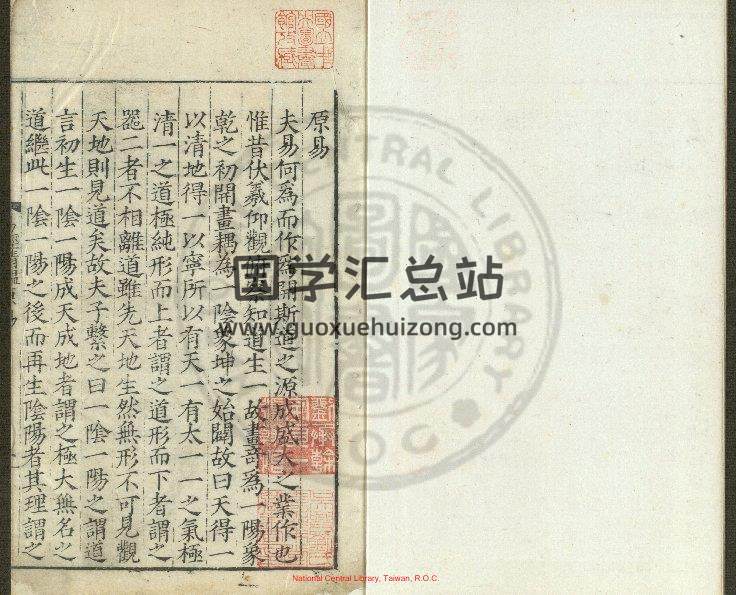 國立中央圖書館收藏
原易
夫易何為而作為斯道之源成盛大之業作也
惟昔伏羲仰觀俯察知道生一故畫奇為一陽象
乾之初開畫耦為一陰象坤之始闢故曰天得一
以清地得一以寧所以有天一有太一一之氣極
清一之道極純形而上者謂之道形而下者謂之
器二者不相離道雖先天地生然無形不可見觀
天地則見道矣故夫子繫之曰一陰一陽之謂道
言初生一陰一陽成天成地者謂之極大無名之
道繼此一陰一陽之後而再生陰陽者其理謂之
国学汇总站
www.guoxuehuizong.com
CENTRAL LIBRARY
National Central Library, Taiwan, R.O.C.